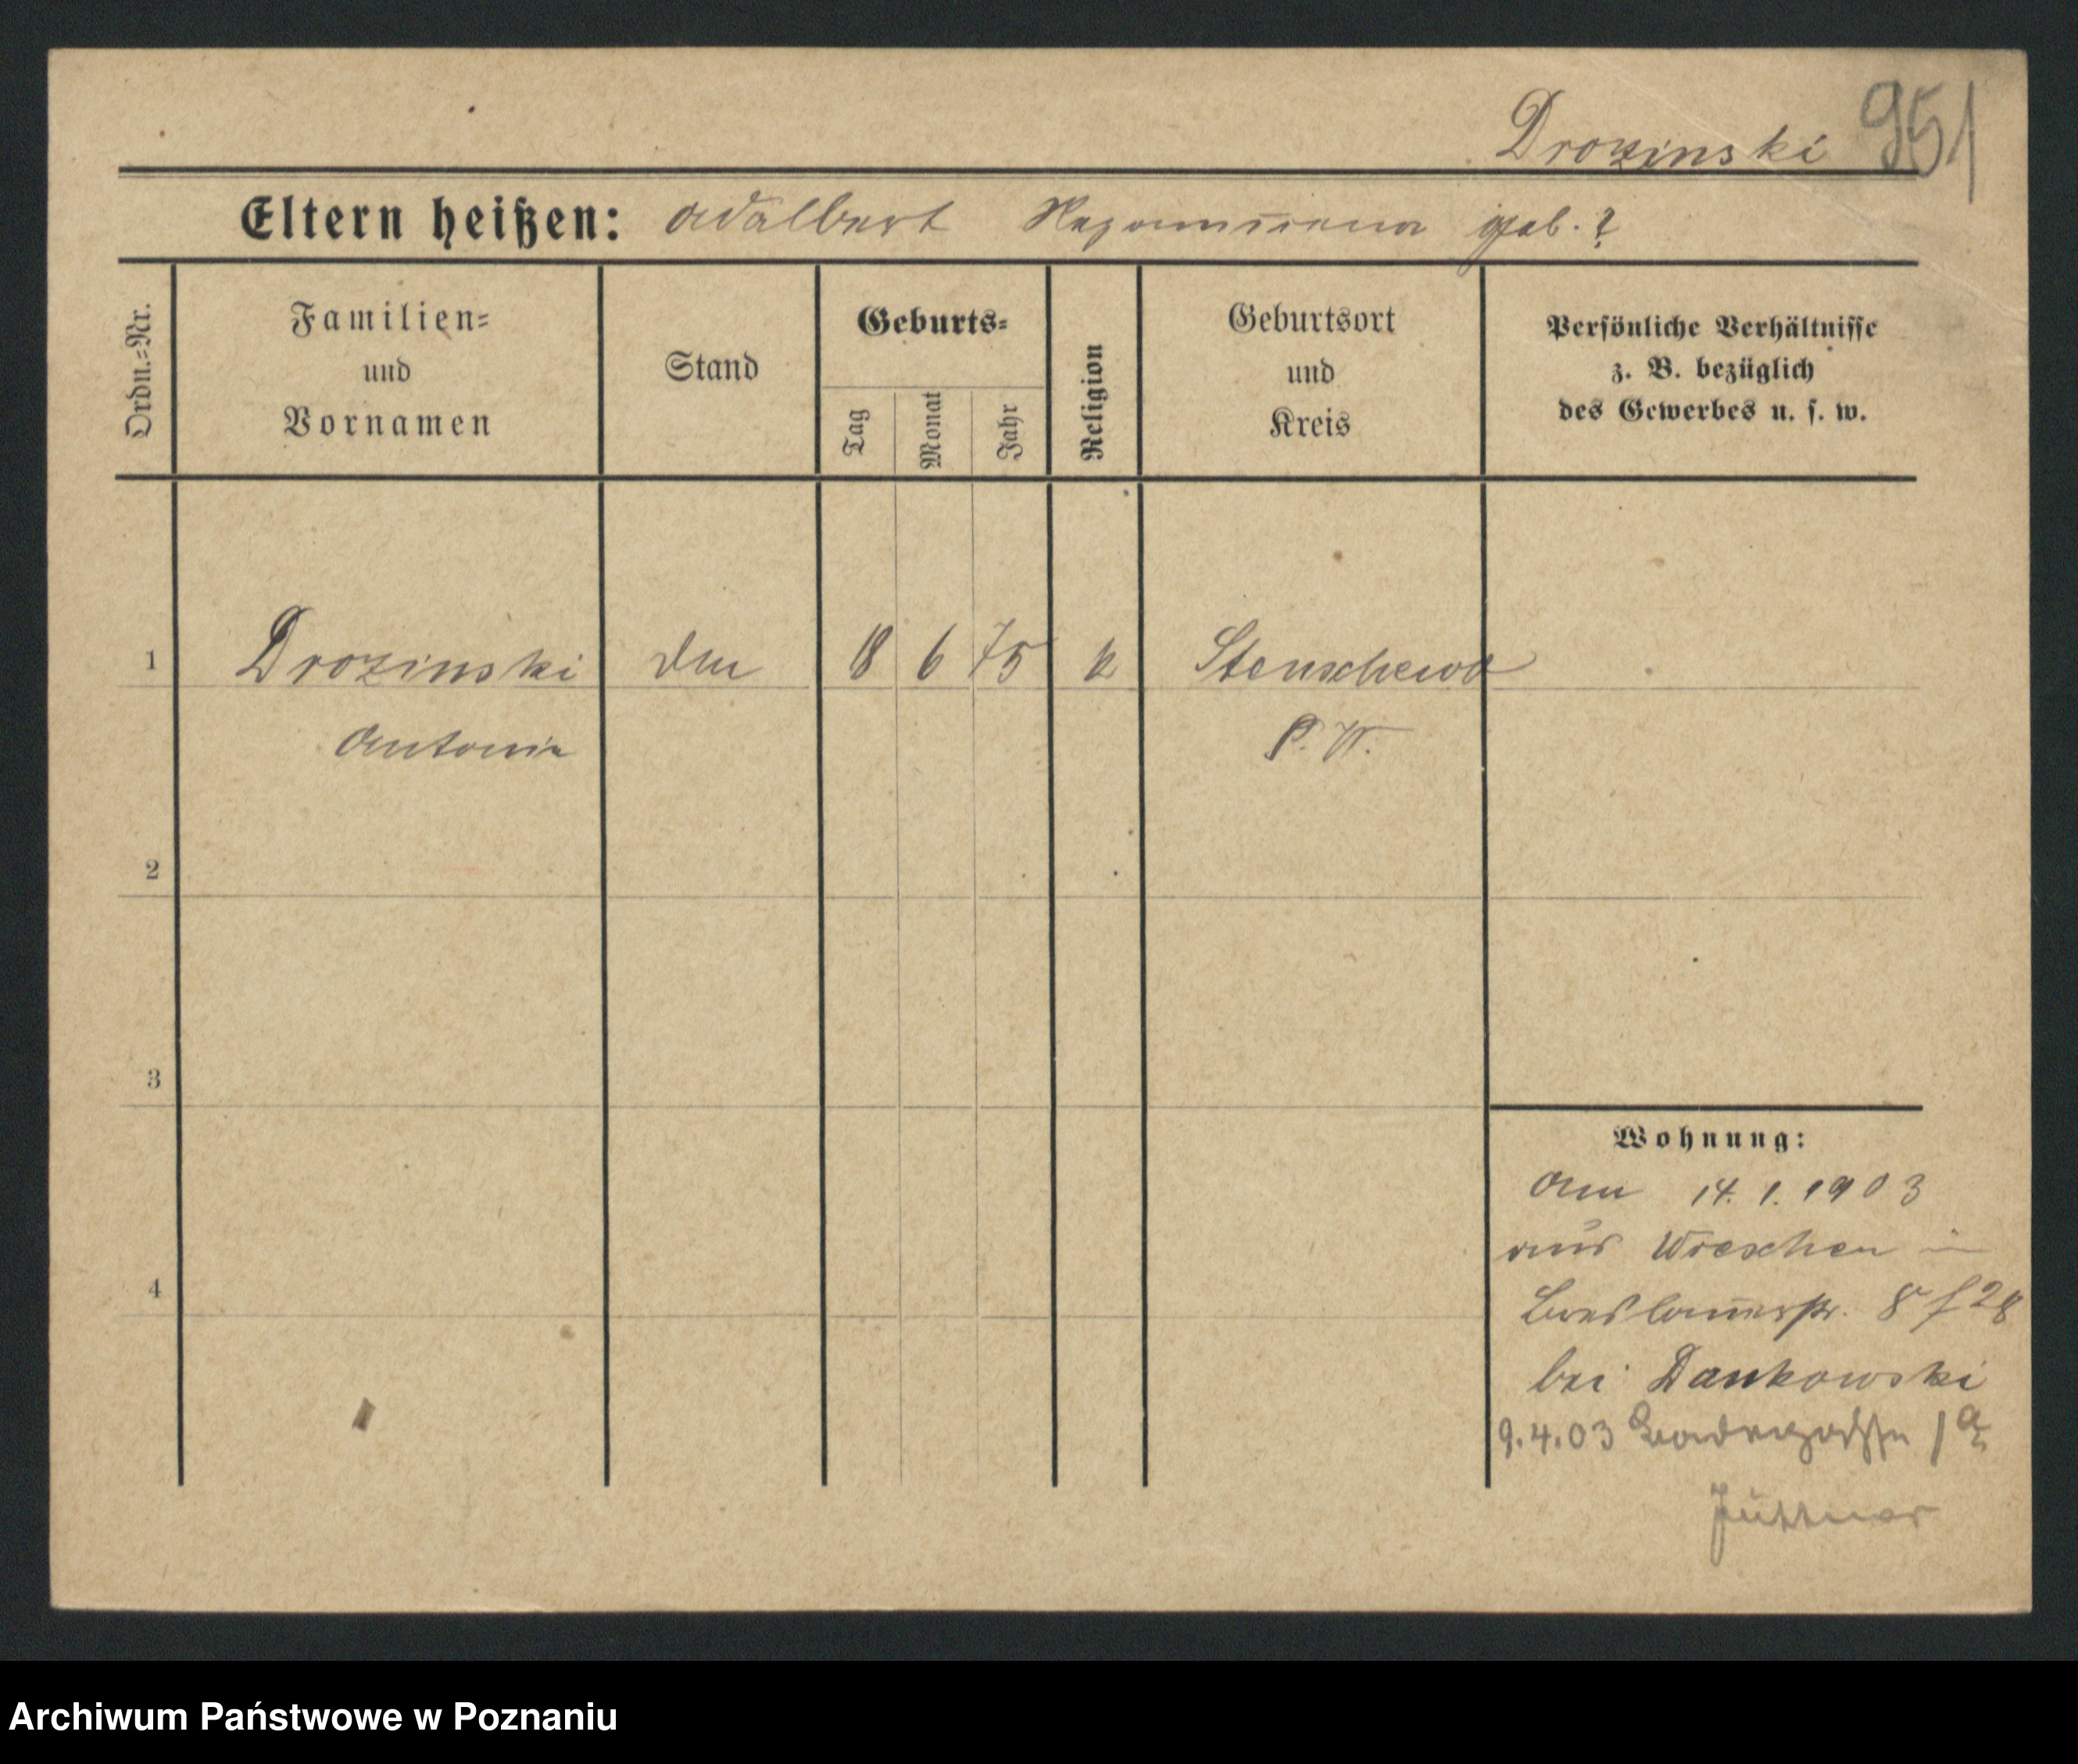 Drozinski 951
Eltern heißen: Adalbert Nepomucena geb. ?
Ordn.=Nr.
Familien=
und
Vornamen
Stand
Geburts=
Tag
Monat
Jahr
Religion
Geburtsort
und
Kreis
Persönliche Verhältnisse
z. B. bezüglich
des Gewerbes u. s. w.
1 Drozinski 18 6 75 k Stenschewo
Antonia P. W.
2
3
4
Wohnung:
Am 14. 1. 1903
aus Wreschen in
Breslauerstr. 8
bei Dankowski
9.4.03
Jüttner
Archiwum Państwowe w Poznaniu